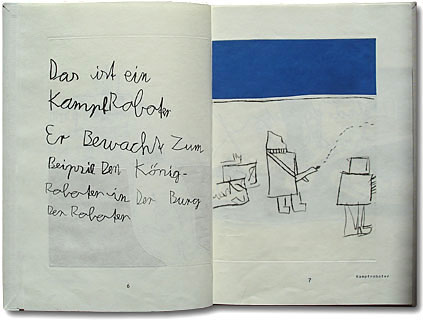 Das ist ein
KampfRoboter
Er Bewacht Zum
Beipziel Den König-
Roboter in Der Burg
Der Roboter
6
7
Kampfroboter